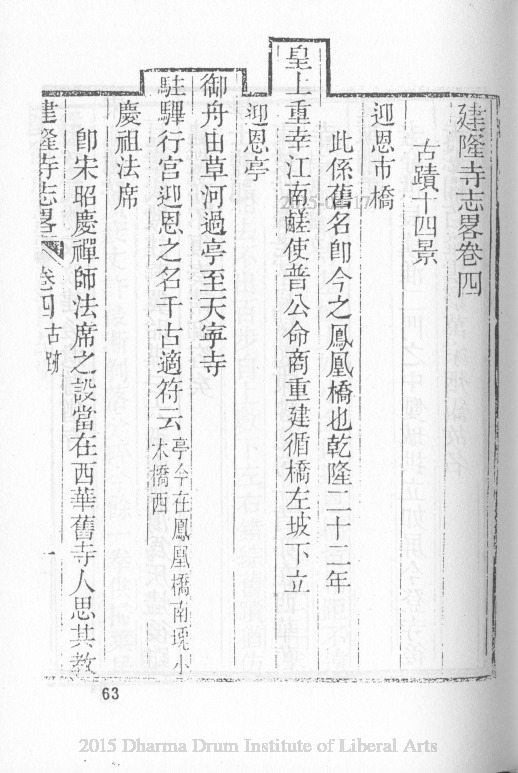 建隆寺志畧卷四
古蹟十四景
迎恩市橋
此係舊名卽今之鳳凰橋也乾隆二十二年
皇上重幸江南鹺使普公命商重建循橋左坡下立
迎恩亭
御舟由草河過亭至天寧寺
駐驆行宫迎恩之名千古適符云亭今在鳳凰橋南小
木橋西
慶祖法席
卽宋昭慶禪師法席之設當在西華舊寺人思其教
建隆寺志畧 卷四 古跡 一
63
2015 Dharma Drum Institute of Liberal Arts